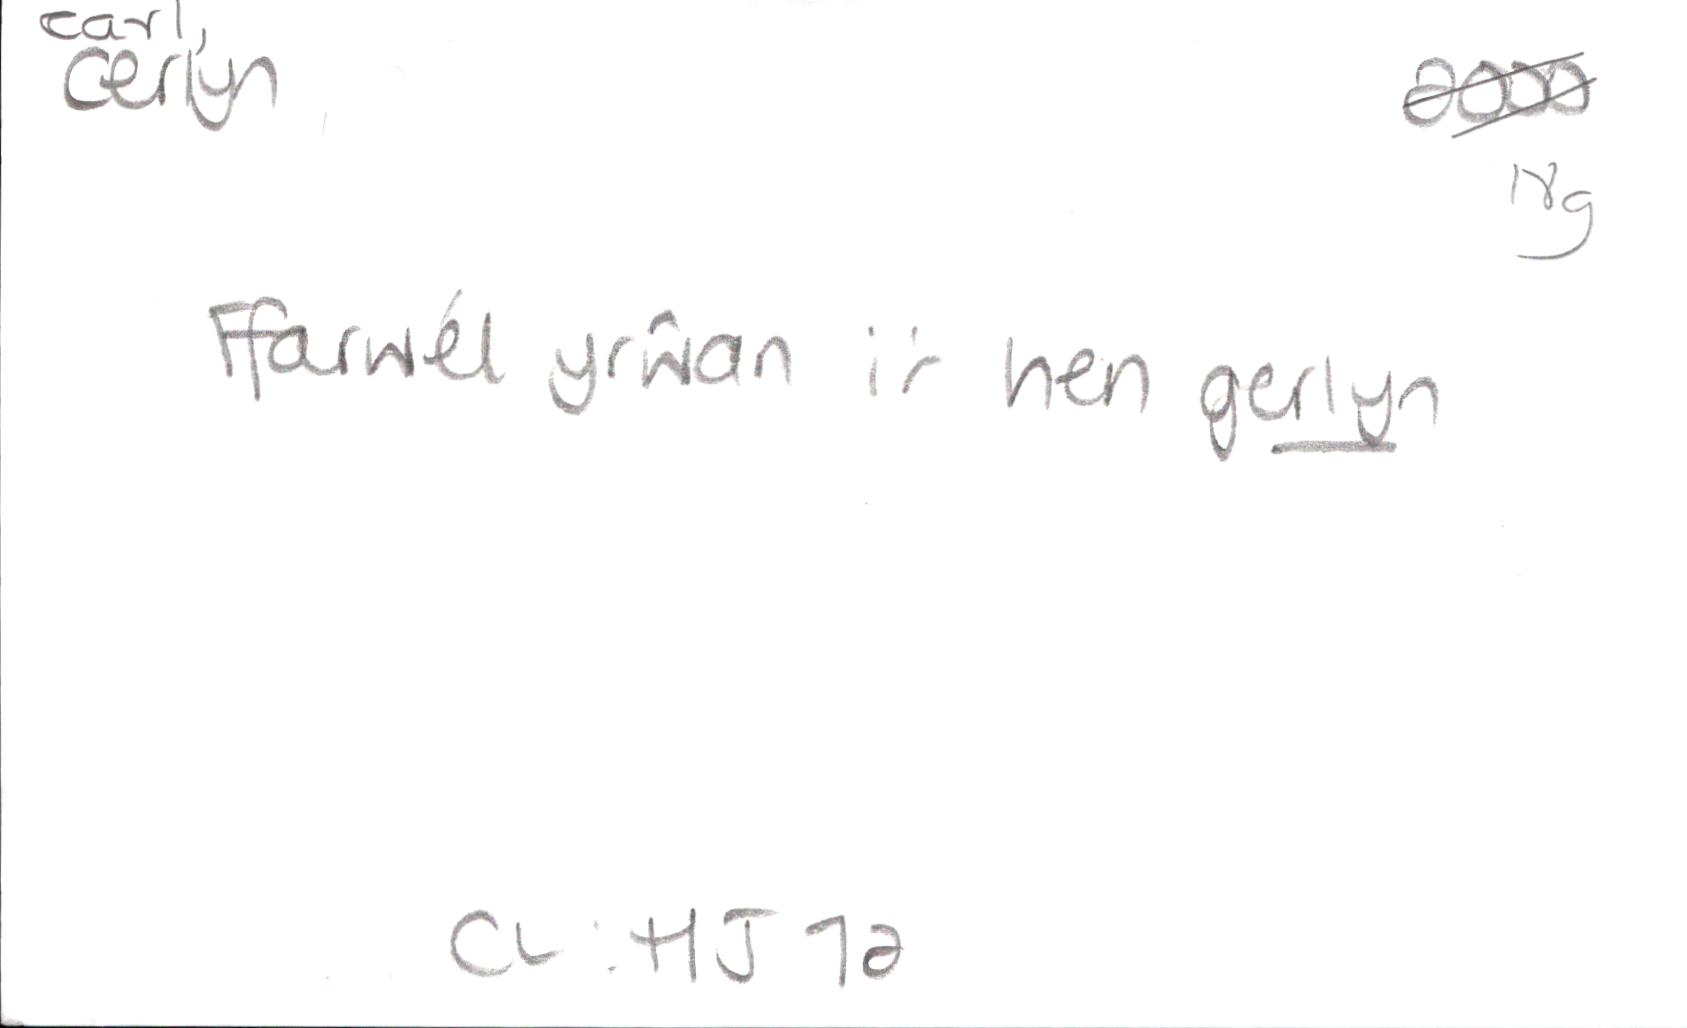 carl,
cerlyn
2000
18g
Ffarwél yrŵan i'r hen gerlyn
CL : HJ 72